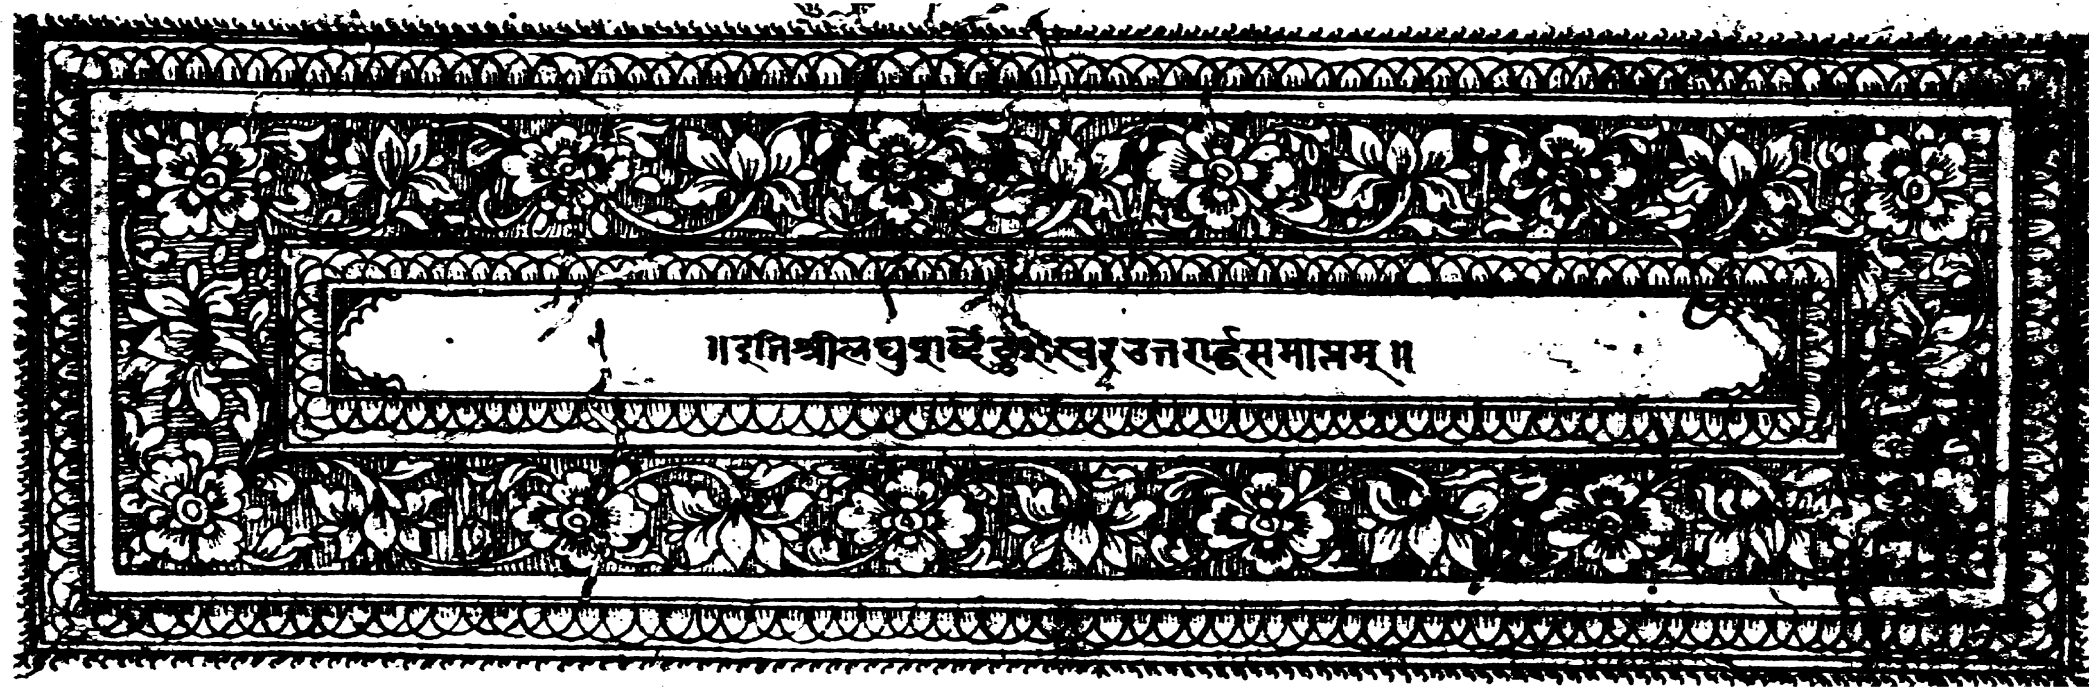 ॥ इति श्रीलघुशब्देंदुशेखर उत्तरार्द्ध समाप्तम् ॥